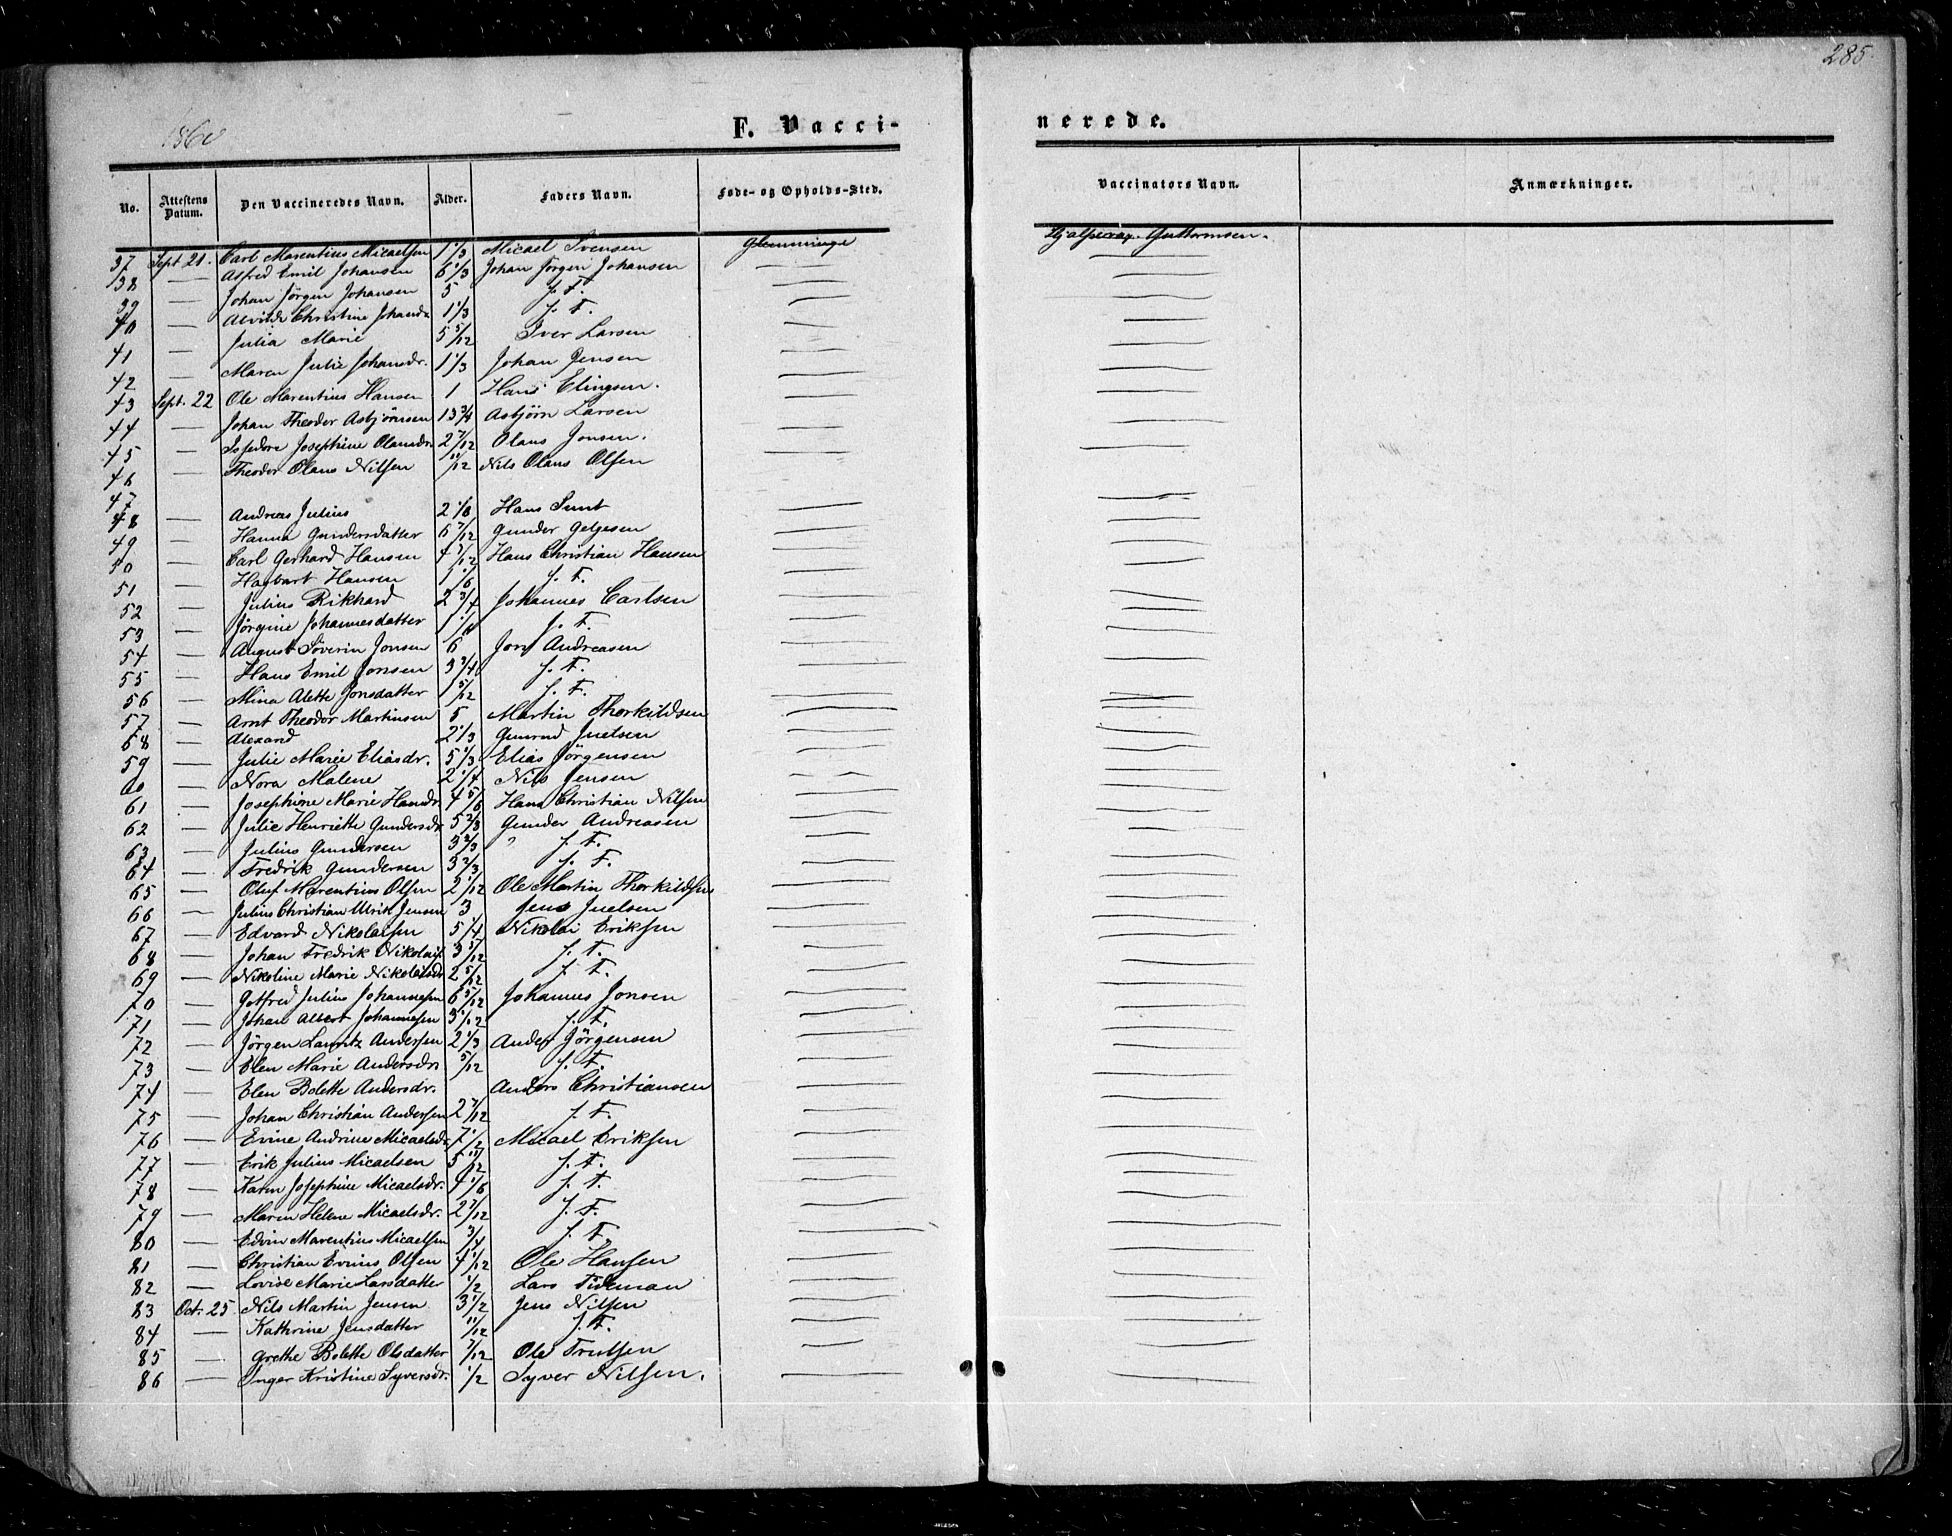 285.
1860
F. Vacci-
nerede.
No. Attestens Datum. Den Vaccineredes Navn. Alder. Faders Navn. Føde- og Opholds-Sted. Vaccinators Navn. Anmærkninger.
37 Sept 21. Carl Marentius Micaelsen 1 1/3 Micael Svensen Glemminge Hjælpevac. Guttormsen.
38 — Alfred Emil Johansen 6 1/3 Johan Jørgen Johansen — —
39 — Johan Jørgen Johansen 5 f. F. — —
40 — Alvilde Christine Johansdr 1 1/3 f. F. — —
41 — Julia Marie 5 5/12 Iver Larsen — —
42 — Maren Julie Johansdr. 1 1/3 Johan Jensen — —
43 Sept. 22 Ole Marentius Hansen 1 Hans Elingsen. — —
44 — Johan Theodor Asbjørnsen 13 3/4 Asbjørn Larsen — —
45 — Josephine Olausdr. 2 7/12 Olaus Jonsen. — —
46 — Theodor Olaus Nilsen 11/12 Nils Olaus Olsen — —
47
48 — Andreas Julius 2 1/8 Hans — —
49 — Hanna Gundersdatter 6 7/12 Gunder Helgesen — —
50 — Carl Gerhard Hansen 4 7/12 Hans Christian Hansen — —
51 — Hagbart Hansen 1 1/6 f. F. — —
52 — Julius Rikhard 2 3/4 Johannes Carlsen — —
53 — Jørgine Johannesdatter f. F. — —
54 — August Søverin Jonsen 6 Jon Andreasen — —
55 — Hans Emil Jonsen 3 3/4 f. F. — —
56 — Mina Alette Jonsdatter 1 5/12 f. F. — —
57 — Arnt Theodor Martinsen 5 Martin Thorkildsen — —
58 — Alexand 2 1/3 Juelsen — —
59 — Julie Marie Eliasdr. 5 1/3 Elias Jørgensen — —
60 — Nora Malene 2 1/4 Nils Jensen — —
61 — Josephine Marie Hansdr. 4 5/6 Hans Christian Nilsen — —
62 — Julie Henriette Gundersdr 5 2/3 Gunder Andreasen — —
63 — Julius Gundersen 3 2/3 " f. F. — —
64 — Fredrik Gundersen 3 2/3 f. F. — —
65 — Oluf Marentius Olsen 2 1/12 Ole Martin Thorkildsen — —
66 — Julius Christian Ulrik Jensen 3 Jens Juelsen — —
67 — Edvard Nikolaisen 5 1/4 Nikolai Eriksen — —
68 — Johan Fredrik Nikolais. 3 5/12 f. F. — —
69 — Nikoline Marie Nikolaisdr 2 5/12 f. F. — —
70 — Gotfred Julius Johannesen 6 5/12 Johannes Jonsen — —
71 — Johan Albert Johannesen 3 1/12 f. F. — —
72 — Jørgen Lauritz Andersen 2 1/3 Anders Jørgensen — —
73 — Elen Marie Andersdr 5/12 f. F. — —
74 — Elen Bolette Andersdr. Anders Christiansen — —
75 — Johan Christian Andersen 2 7/12 f. F. — —
76 — Evine Andrine Micaelsdr 7 1/2 Micael Eriksen — —
77 — Erik Julius Micaelsen 5 11/12 f. F. — —
78 — Karen Josephine Micaelsdr. 4 1/6 f. F. — —
79 — Maren Helene Micaelsdr. 2 7/12 f. F. — —
80 — Edvin Marentius Micaelsen 3/4 f. F. — —
81 — Christian Evinus Olsen 4 1/12 Ole Hansen — —
82 — Lovise Marie Larsdatter 1/2 Lars Tideman — —
83 Oct. 25. Nils Martin Jensen 3 1/2 Jens Nilsen — —
84 — Kathrine Jensdatter 11/12 f. F. — —
85 — Grethe Bolette Olsdatter 7/12 Ole Trulsen — —
86 — Inger Kristine Syversdr. 1/2 Syver Nilsen. — —